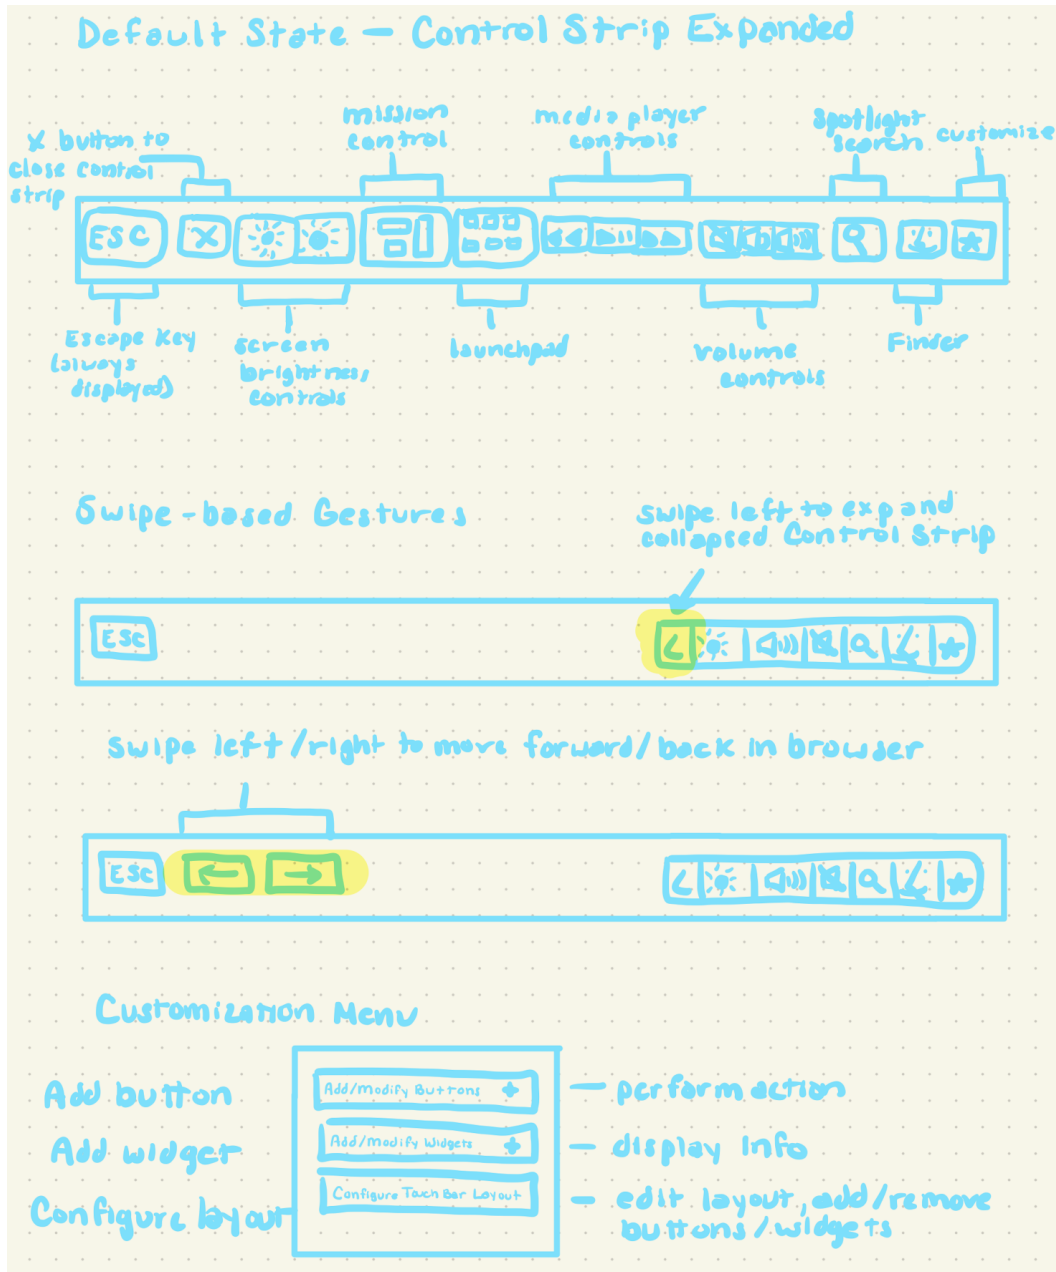 Default State — Control Strip Expanded
X button to
close control
strip
mission
control
media player
controls
Spotlight
search
customize
ESC
X
Escape Key
(always
displayed)
screen
brightness
controls
launchpad
volume
controls
Finder
Swipe-based Gestures
swipe left to expand
collapsed Control Strip
ESC
swipe left/right to move forward/back in browser
ESC
Customization Menu
Add button
Add/Modify Buttons +
— perform action
Add widget
Add/Modify Widgets +
— display info
Configure layout
Configure Touch Bar Layout
— edit layout, add/remove
buttons/widgets